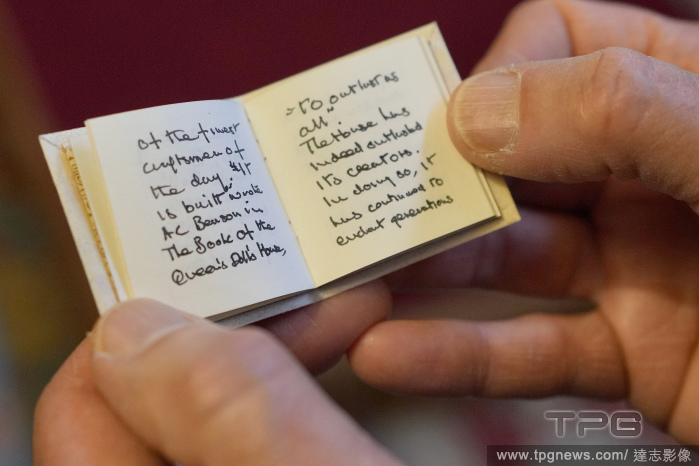 of the finest
craftsmen of
the day. "It
is built" wrote
AC Benson in
The Book of the
Queen's Dolls House,
"to outlast us
all".
The House has
indeed outlasted
its creators.
In doing so, it
has continued to
enchant generations
TPG
www.tpgnews.com/ 達志影像